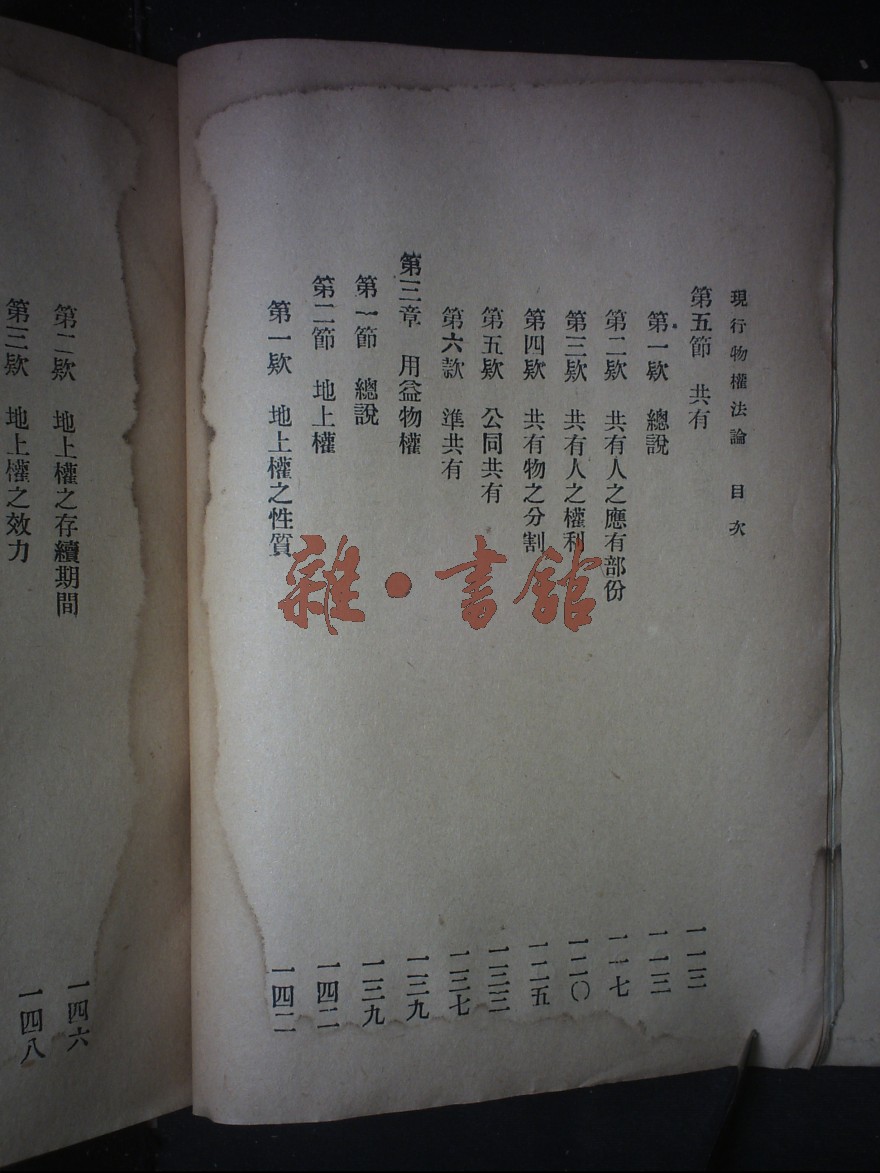 現行物權法論　目次
第五節　共有　一一三
第一欵　總說　一一三
第二欵　共有人之應有部份　一一七
第三欵　共有人之權利　一二〇
第四欵　共有物之分割　一二五
第五欵　公同共有　一三三
第六款　準共有　一三七
第三章　用益物權　一三九
第一節　總說　一三九
第二節　地上權　一四二
第一欵　地上權之性質　一四二
第二欵　地上權之存續期間　一四六
第三欵　地上權之效力　一四八
雜·書館